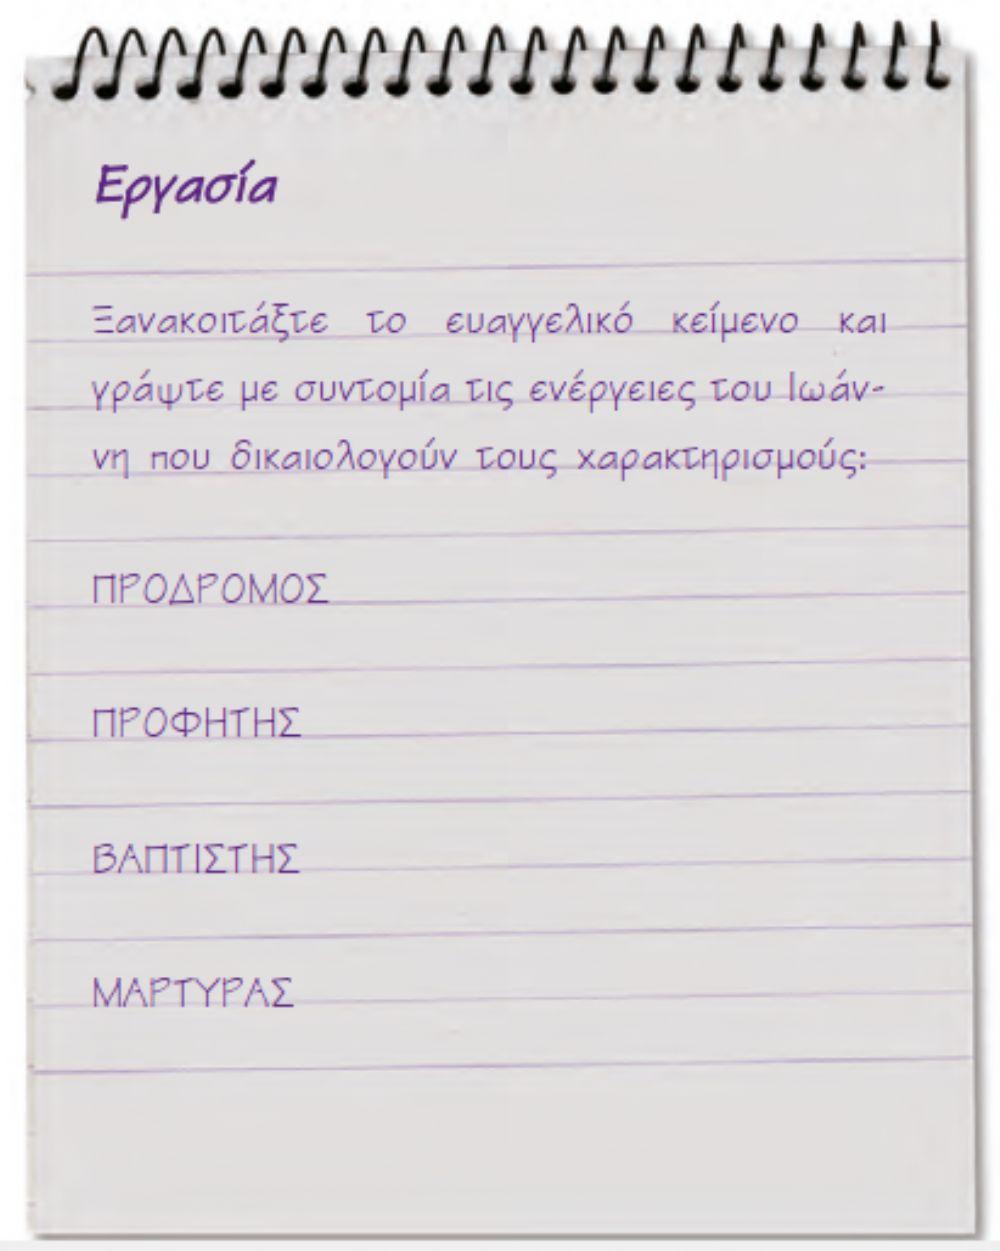 Εργασία
Ξανακοιτάξτε το ευαγγελικό κείμενο και
γράψτε με συντομία τις ενέργειες του Ιωάν-
νη που δικαιολογούν τους χαρακτηρισμούς:
ΠΡΟΔΡΟΜΟΣ
ΠΡΟΦΗΤΗΣ
ΒΑΠΤΙΣΤΗΣ
ΜΑΡΤΥΡΑΣ